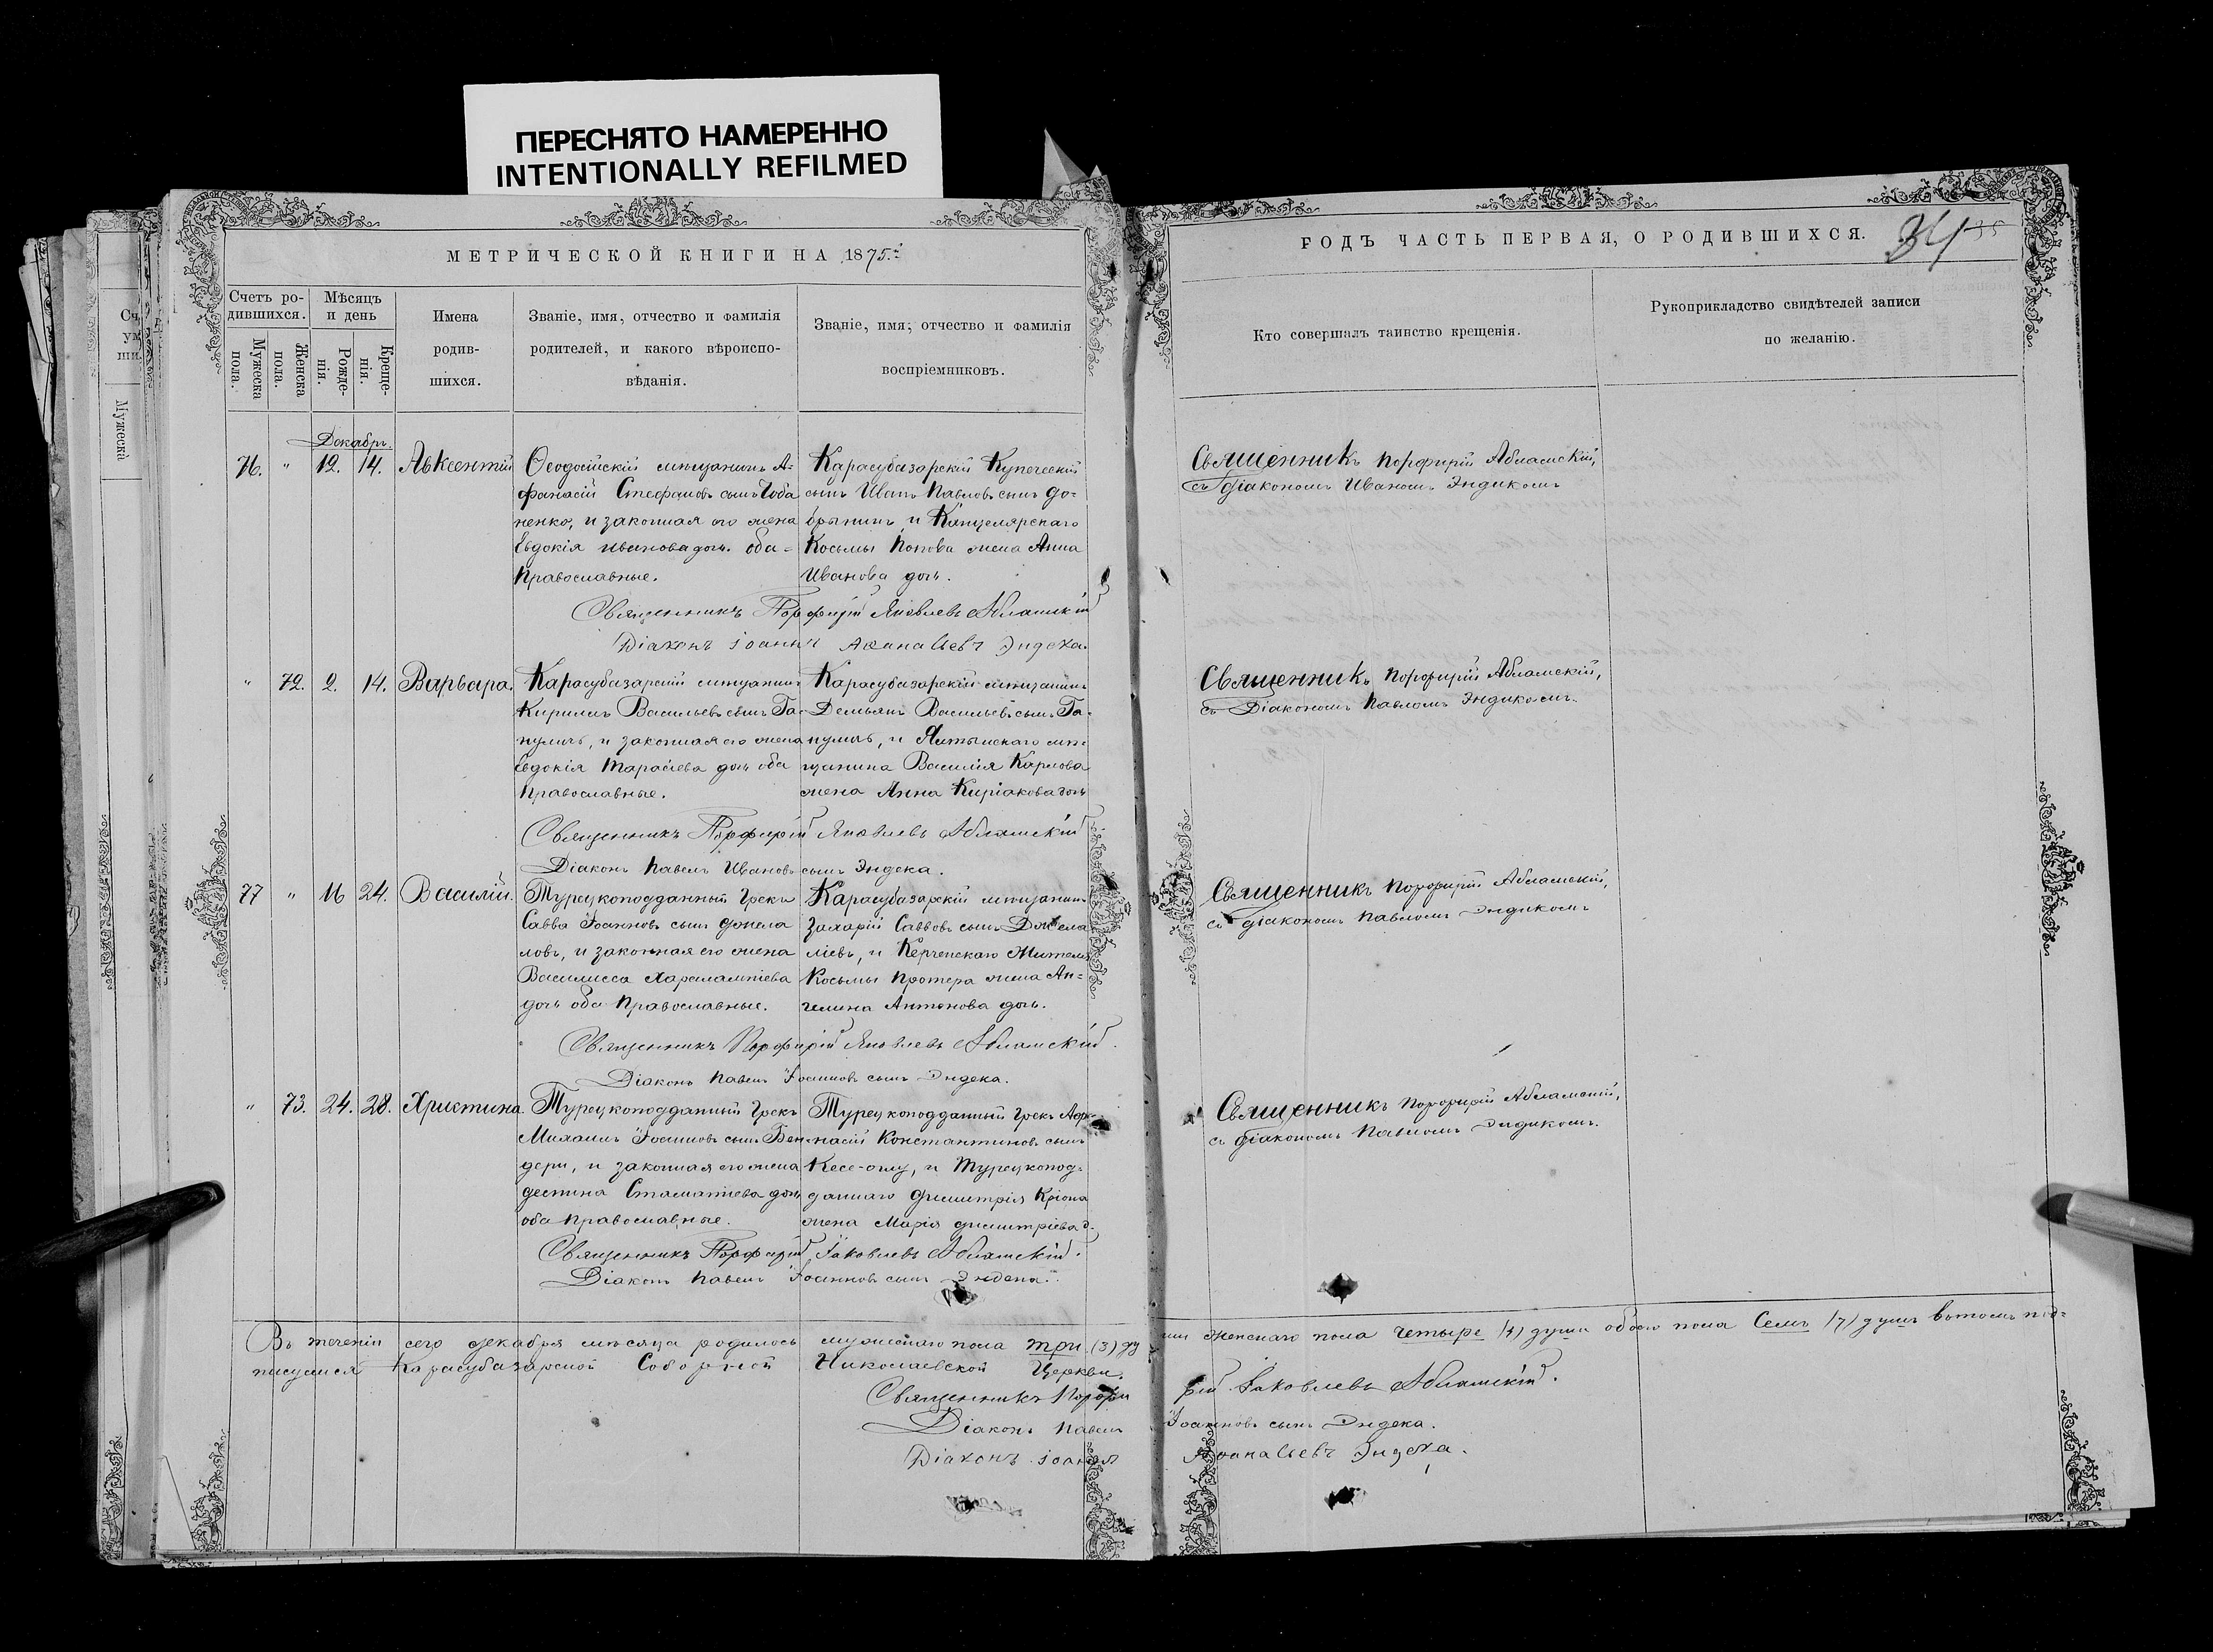 ПЕРЕСНЯТО НАМЕРЕННО
INTENTIONALLY REFILMED
МЕТРИЧЕСКОЙ КНИГИ НА 1875
Счетъ ро-
дившихся.
Мужеска
пола.
Женска
пола.
Мѣсяцъ
и день
Рожде-
нія.
Креще-
нія.
Имена
родив-
шихся.
Званіе, имя, отчество и фамилія
родителей, и какого вѣроиспо-
вѣданія.
Званіе, имя, отчество и фамилія
воспріемниковъ.
Декабрь.
76. " 12. 14. Авксентій
Ѳеодосійскій мѣщанинъ А=
фанасій Стефановъ сынъ Чоба
ненко, и законная его жена
Евдокія Иванова дочь. оба=
православные.
Карасубазарскій Купеческій
сынъ Иванъ Павловъ сынъ До=
брынинъ и Канцелярскаго
Косьмы Попова жена Анна
Иванова дочь.
Священникъ Порфирій Яковлевъ Абламскій
Діаконъ Іоаннъ Аѳанасьевъ Эндека.
" 72. 2. 14. Варвара.
Карасубазарскій мѣщанинъ
Кириллъ Васильевъ сынъ Га-
нуличъ, и законная его жена
Евдокія Тарасіева дочь оба
православные.
Карасубазарскій мѣщанинъ
Демьянъ Васильевъ сынъ Га-
нуличъ, и Ялтинскаго мѣ=
щанина Василія Карпова
жена Анна Киріакова дочь
Священникъ Порфирій Яковлевъ Абламскій
Діаконъ Павелъ Ивановъ сынъ Эндека.
77 " 16 24. Василій.
Турецкоподданный Грекъ
Савва Іоанновъ сынъ Джела
ловъ, и законная его жена
Василисса Харалампіева
дочь оба Православные.
Карасубазарскій мѣщанинъ
Захарій Саввовъ сынъ Джела
ліевъ, и Керченскаго Жителя
Косьмы Протера жена Ан=
гелина Антонова дочь.
Священникъ Порфирій Яковлевъ Абламскій.
Діаконъ Павелъ Іоанновъ сынъ Эндека.
" 73. 24. 28. Христина.
Турецкоподданный Грекъ
Михаилъ Іоанновъ сынъ Бен-
дери, и законная его жена
Деспина Стаматіева дочь
оба православные.
Турецкоподданный Грекъ Аѳа-
насій Константиновъ сынъ
Кесе-оглу, и Турецкопод=
даннаго Димитрія Кріона
жена Марія Димитріева д.
Священникъ Порфирій Іаковлевъ Абламскій.
Діаконъ Павелъ Іоанновъ сынъ Эндека.
ГОДЪ ЧАСТЬ ПЕРВАЯ, О РОДИВШИХСЯ.
34
35
Кто совершалъ таинство крещенія.
Рукоприкладство свидѣтелей записи
по желанію.
Священникъ Порфирій Абламскій,
съ діакономъ Иваномъ Эндикомъ
Священникъ Порфирій Абламскій,
съ Діакономъ Павломъ Эндикомъ.
Священникъ Порфирій Абламскій,
съ діакономъ Павломъ Эндикомъ
Священникъ Порфирій Абламскій,
съ діакономъ Павломъ Эндикомъ.
Въ теченіи сего декабря мѣсяца родилось мужескаго пола три (3) ду ши женскаго пола четыре (4) души обоего пола Семь (7) душъ въ томъ под=
писуемся Карасубазарской Соборной Николаевской Церкви.
Священникъ Порфирій Іаковлевъ Абламскій.
Діаконъ Павелъ Іоанновъ сынъ Эндека.
Діаконъ Іоаннъ Аѳанасьевъ Эндека.
Мужеска